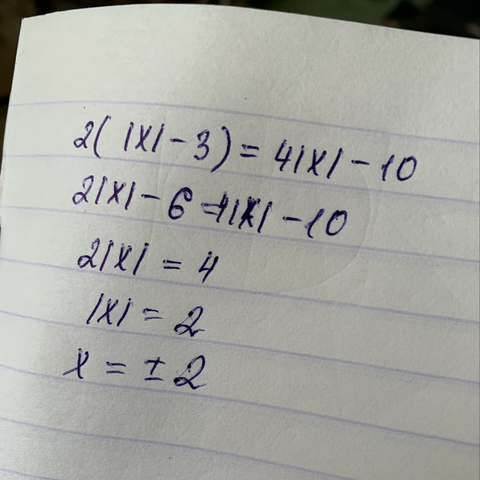 2(|x|-3)=4|x|-10
2|x|-6=4|x|-10
2|x|=4
|x|=2
x=±2